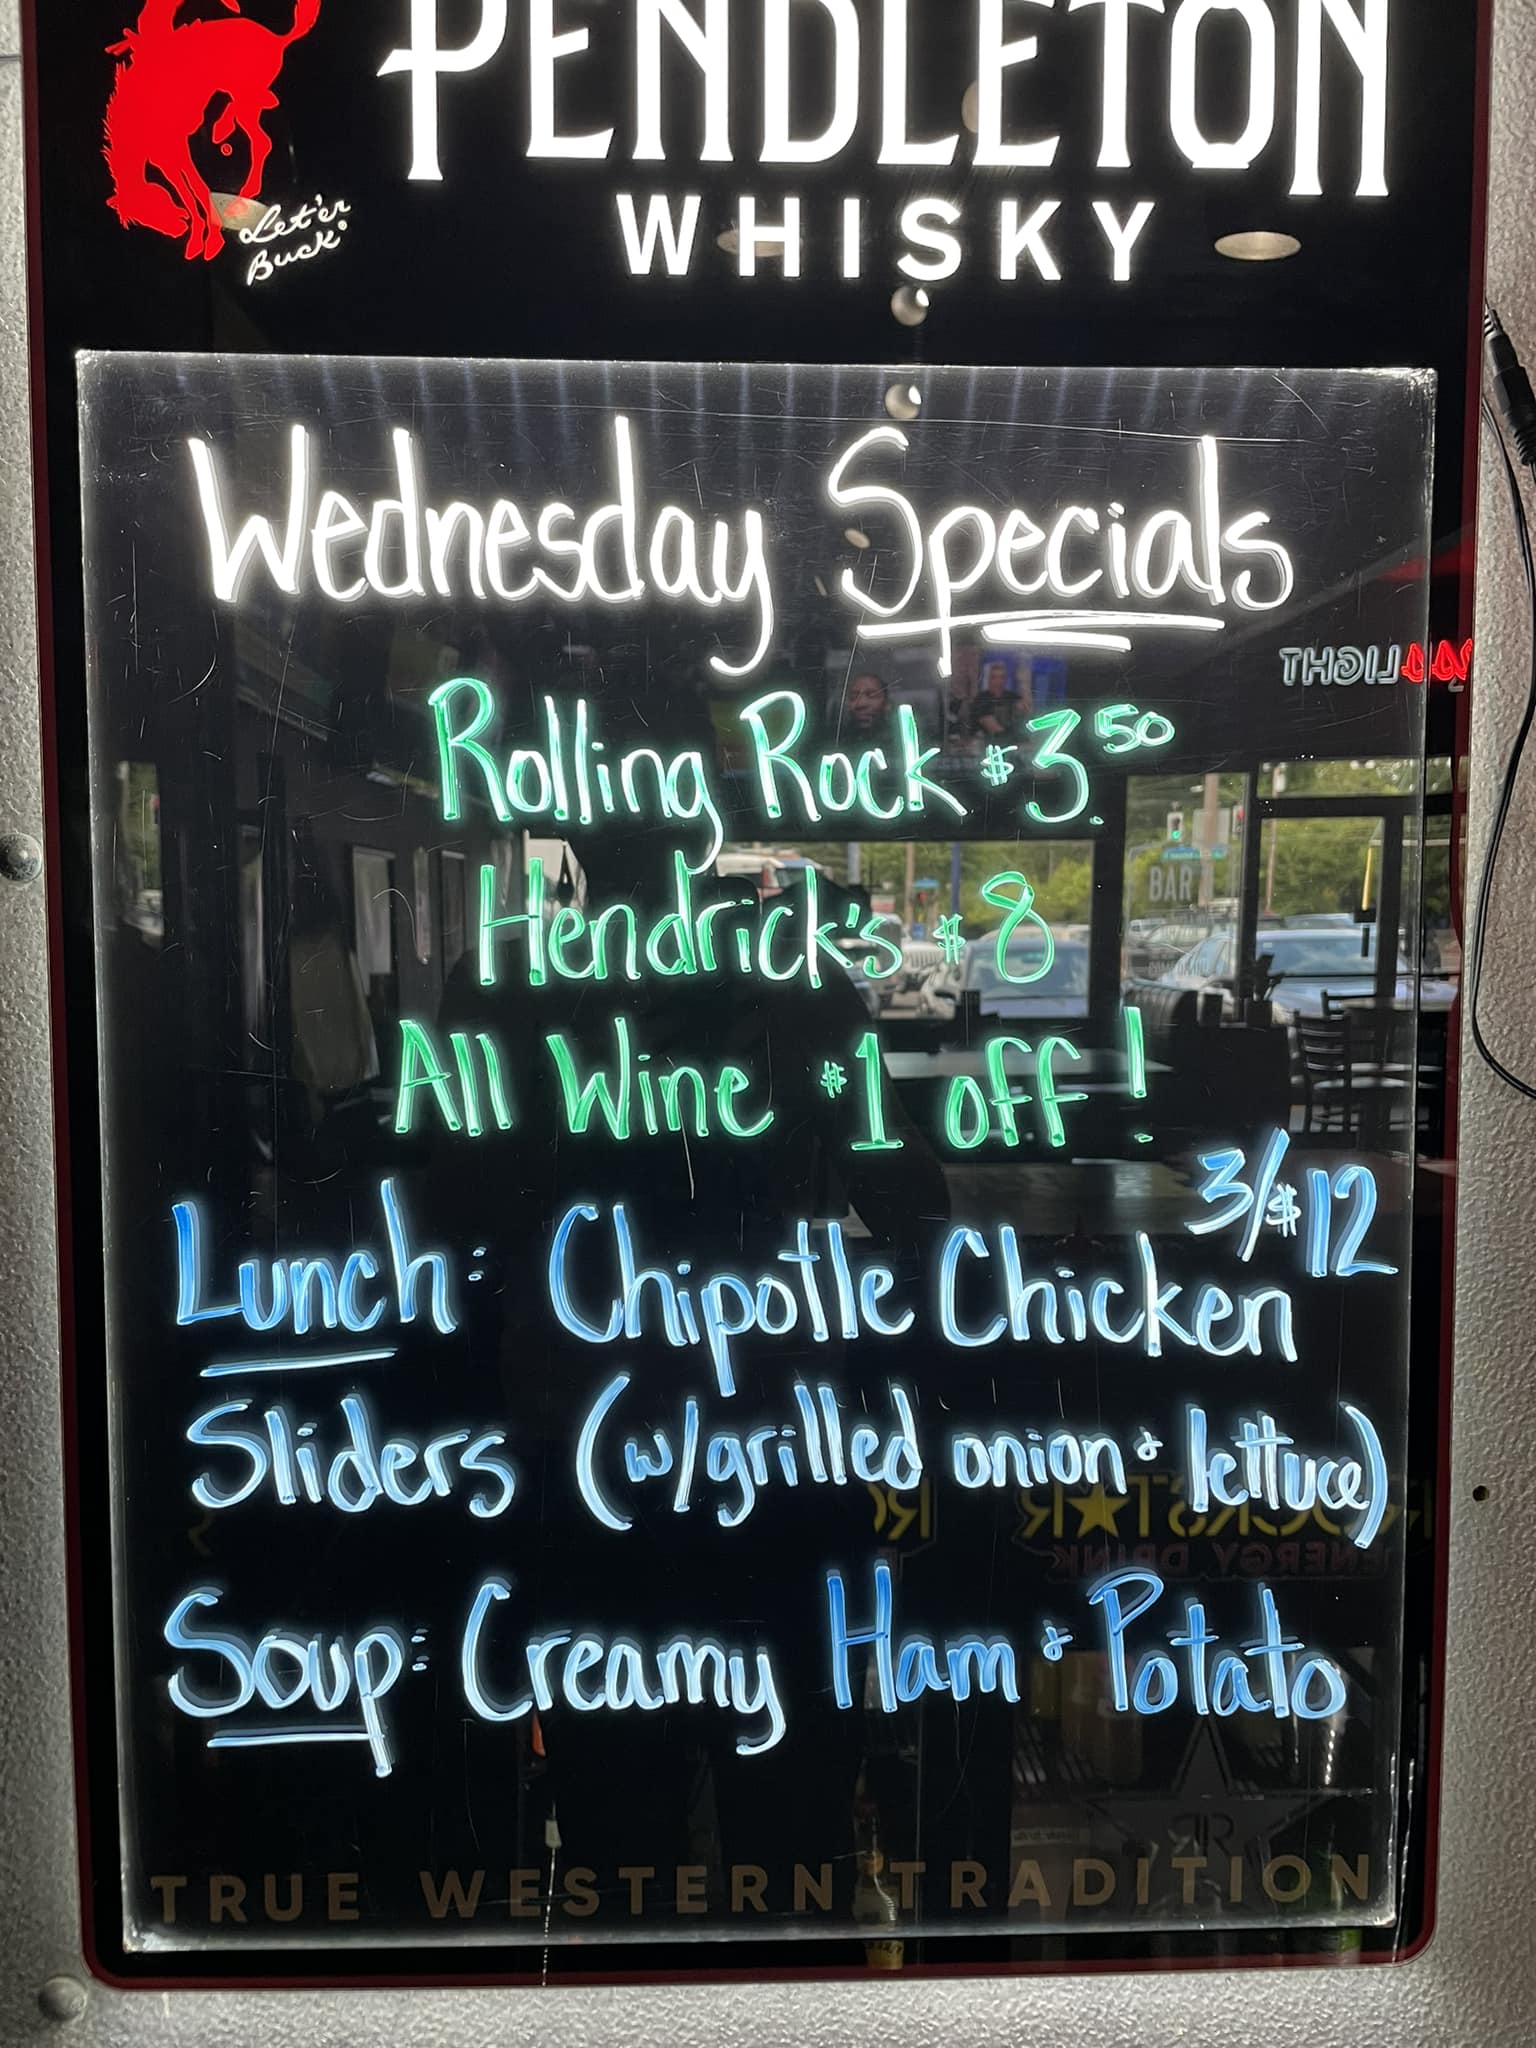 PENDLETON
WHISKY
Let'er
Buck®
Wednesday Specials
Rolling Rock $3.50
Hendrick's $8
All Wine $1 off!
3/$12
Lunch: Chipotle Chicken
Sliders (w/grilled onion & lettuce)
Soup: Creamy Ham & Potato
TRUE WESTERN TRADITION
LIGHT
BAR
ROCKSTAR
ENERGY DRINK